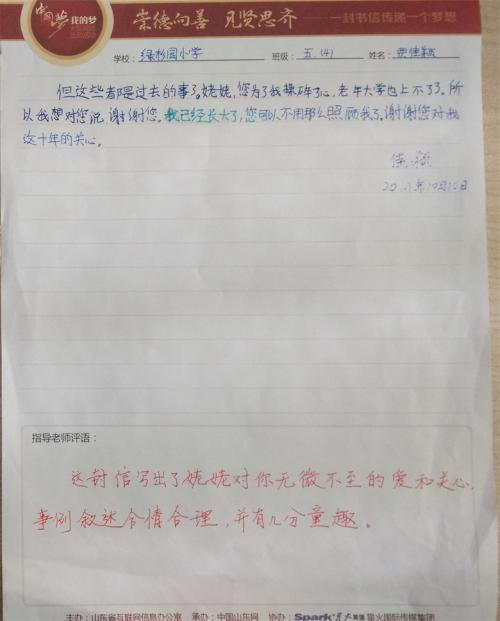 中国梦 我的梦
崇德向善 见贤思齐
一封书信传递一个梦想
学校: 绿杉园小学 班级: 五.(4) 姓名: 佳颖
但这些都是过去的事了,姥姥,您为了我操碎了心,老年大学也上不了了。所
以我想对您说,谢谢您。我已经长大了,您可以不用那么照顾我了,谢谢您对我
这十年的关心。
佳颖
指导老师评语:
这封信写出了姥姥对你无微不至的爱和关心,
事例叙述合情合理,并有几分童趣。
主办:山东省互联网信息办公室 承办:中国山东网 协办: Spark 星火英语 星火国际传媒集团